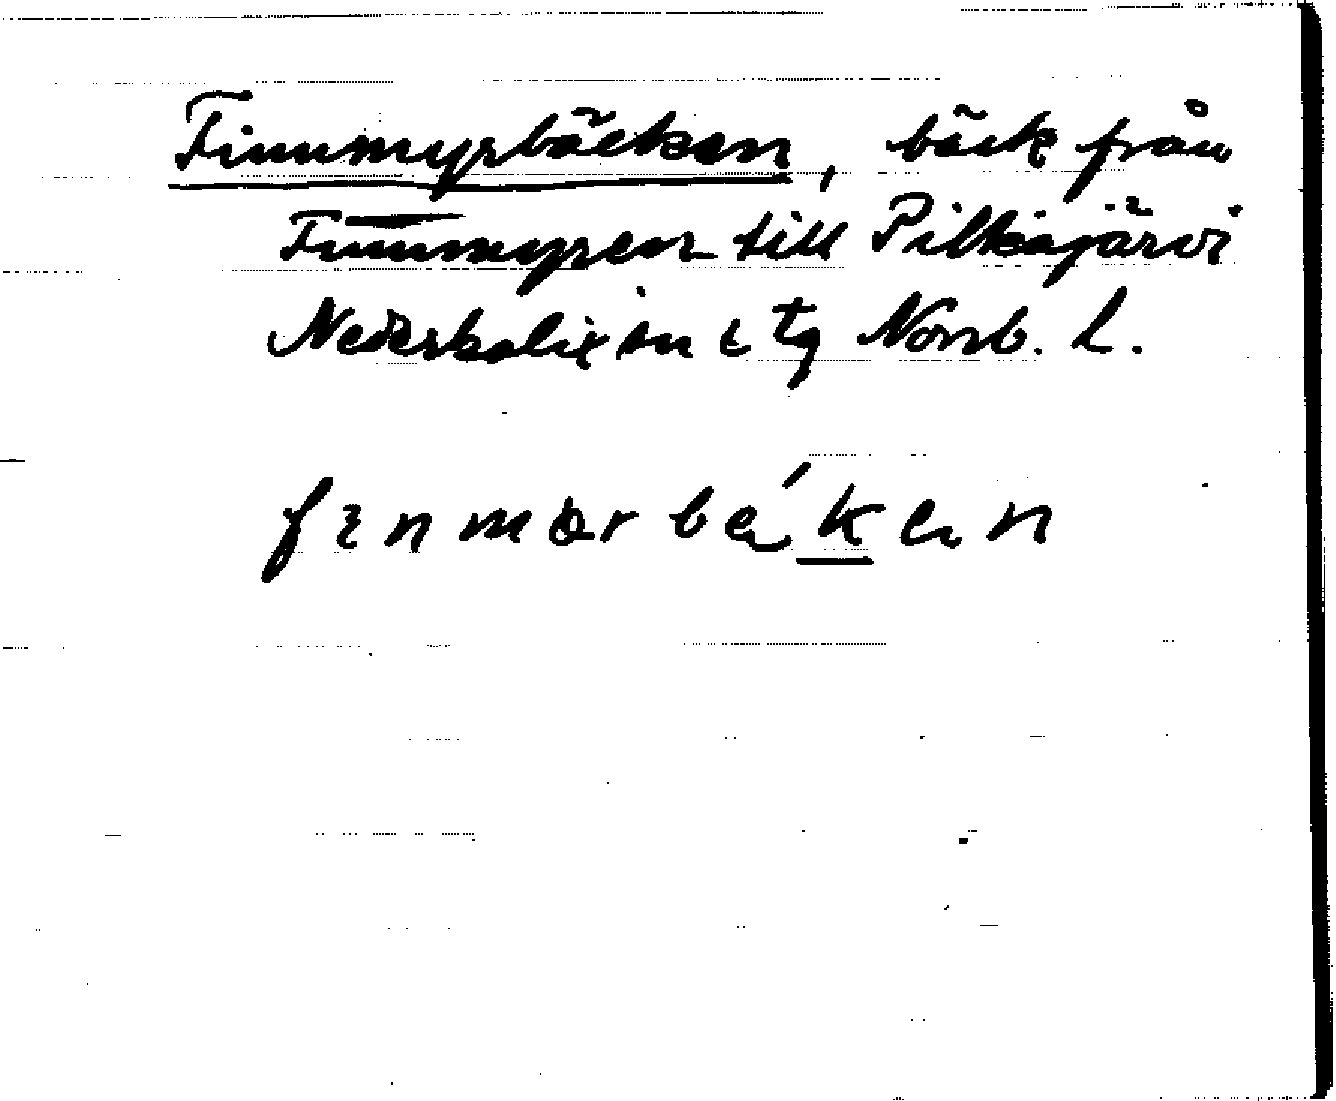 Finnmyrbäcken, bäck från
Finnmyren till Pilkajärvi
Nederkalix sn o tg Norrb. l.
finmörbä́ken